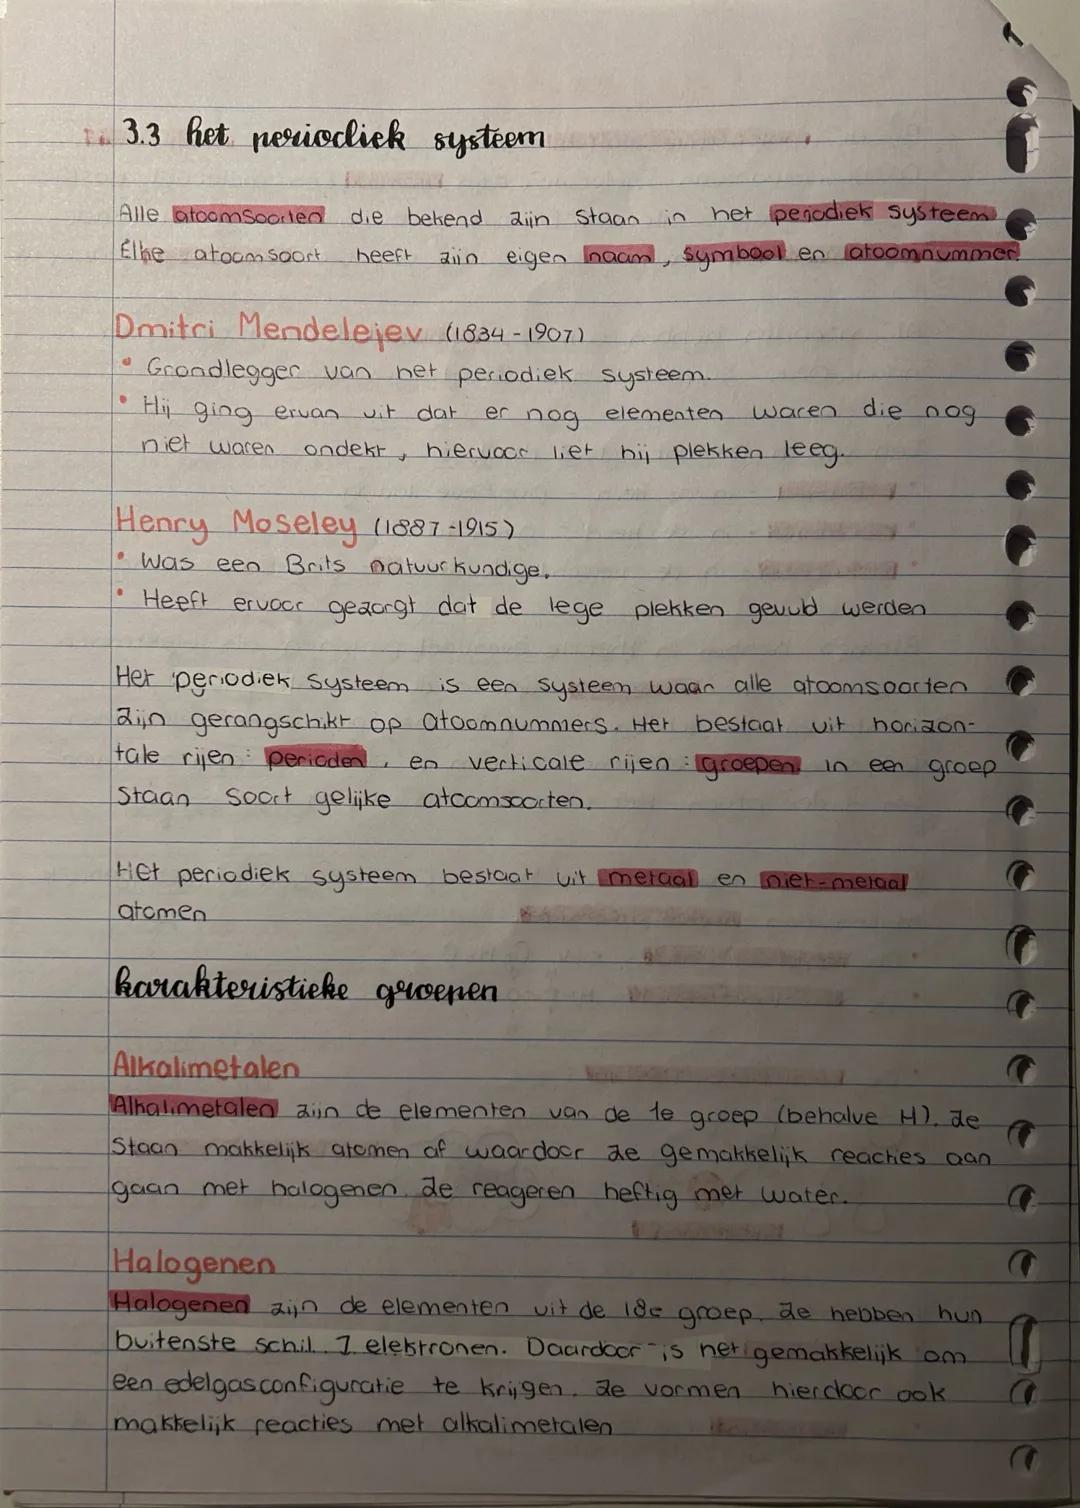 3.3 het periodiek systeem
Alle atoomsoorten die bekend zijn staan in het periodiek systeem
Elke atoomsoort heeft zijn eigen naam, symbool en atoomnummer.
Dmitri Mendelejev (1834-1907)
• Grondlegger van het periodiek systeem.
• Hij ging ervan uit dat er nog elementen waren die nog
niet waren ondekt, hiervoor liet hij plekken leeg.
Henry Moseley (1887-1915)
• Was een Brits natuurkundige.
• Heeft ervoor gezorgt dat de lege plekken gevuld werden
Het periodiek systeem is een systeem waar alle atoomsoorten
zijn gerangschikt op atoomnummers. Het bestaat uit horizon-
tale rijen: perioden, en verticale rijen: groepen in een groep
Staan soort gelijke atoomsoorten.
Het periodiek systeem bestaat uit metaal en niet-metaal
atomen
karakteristieke groepen
Alkalimetalen
Alkalimetalen zijn de elementen van de 1e groep (behalve H). Ze
Staan makkelijk atomen af waardoor ze gemakkelijk reacties aan
gaan met halogenen. Ze reageren heftig met water.
Halogenen
Halogenen zijn de elementen uit de 18e groep. Ze hebben hun
buitenste schil 7 elektronen. Daardoor is het gemakkelijk om
een edelgasconfiguratie te krijgen. Ze vormen hierdoor ook
makkelijk reacties met alkalimetalen